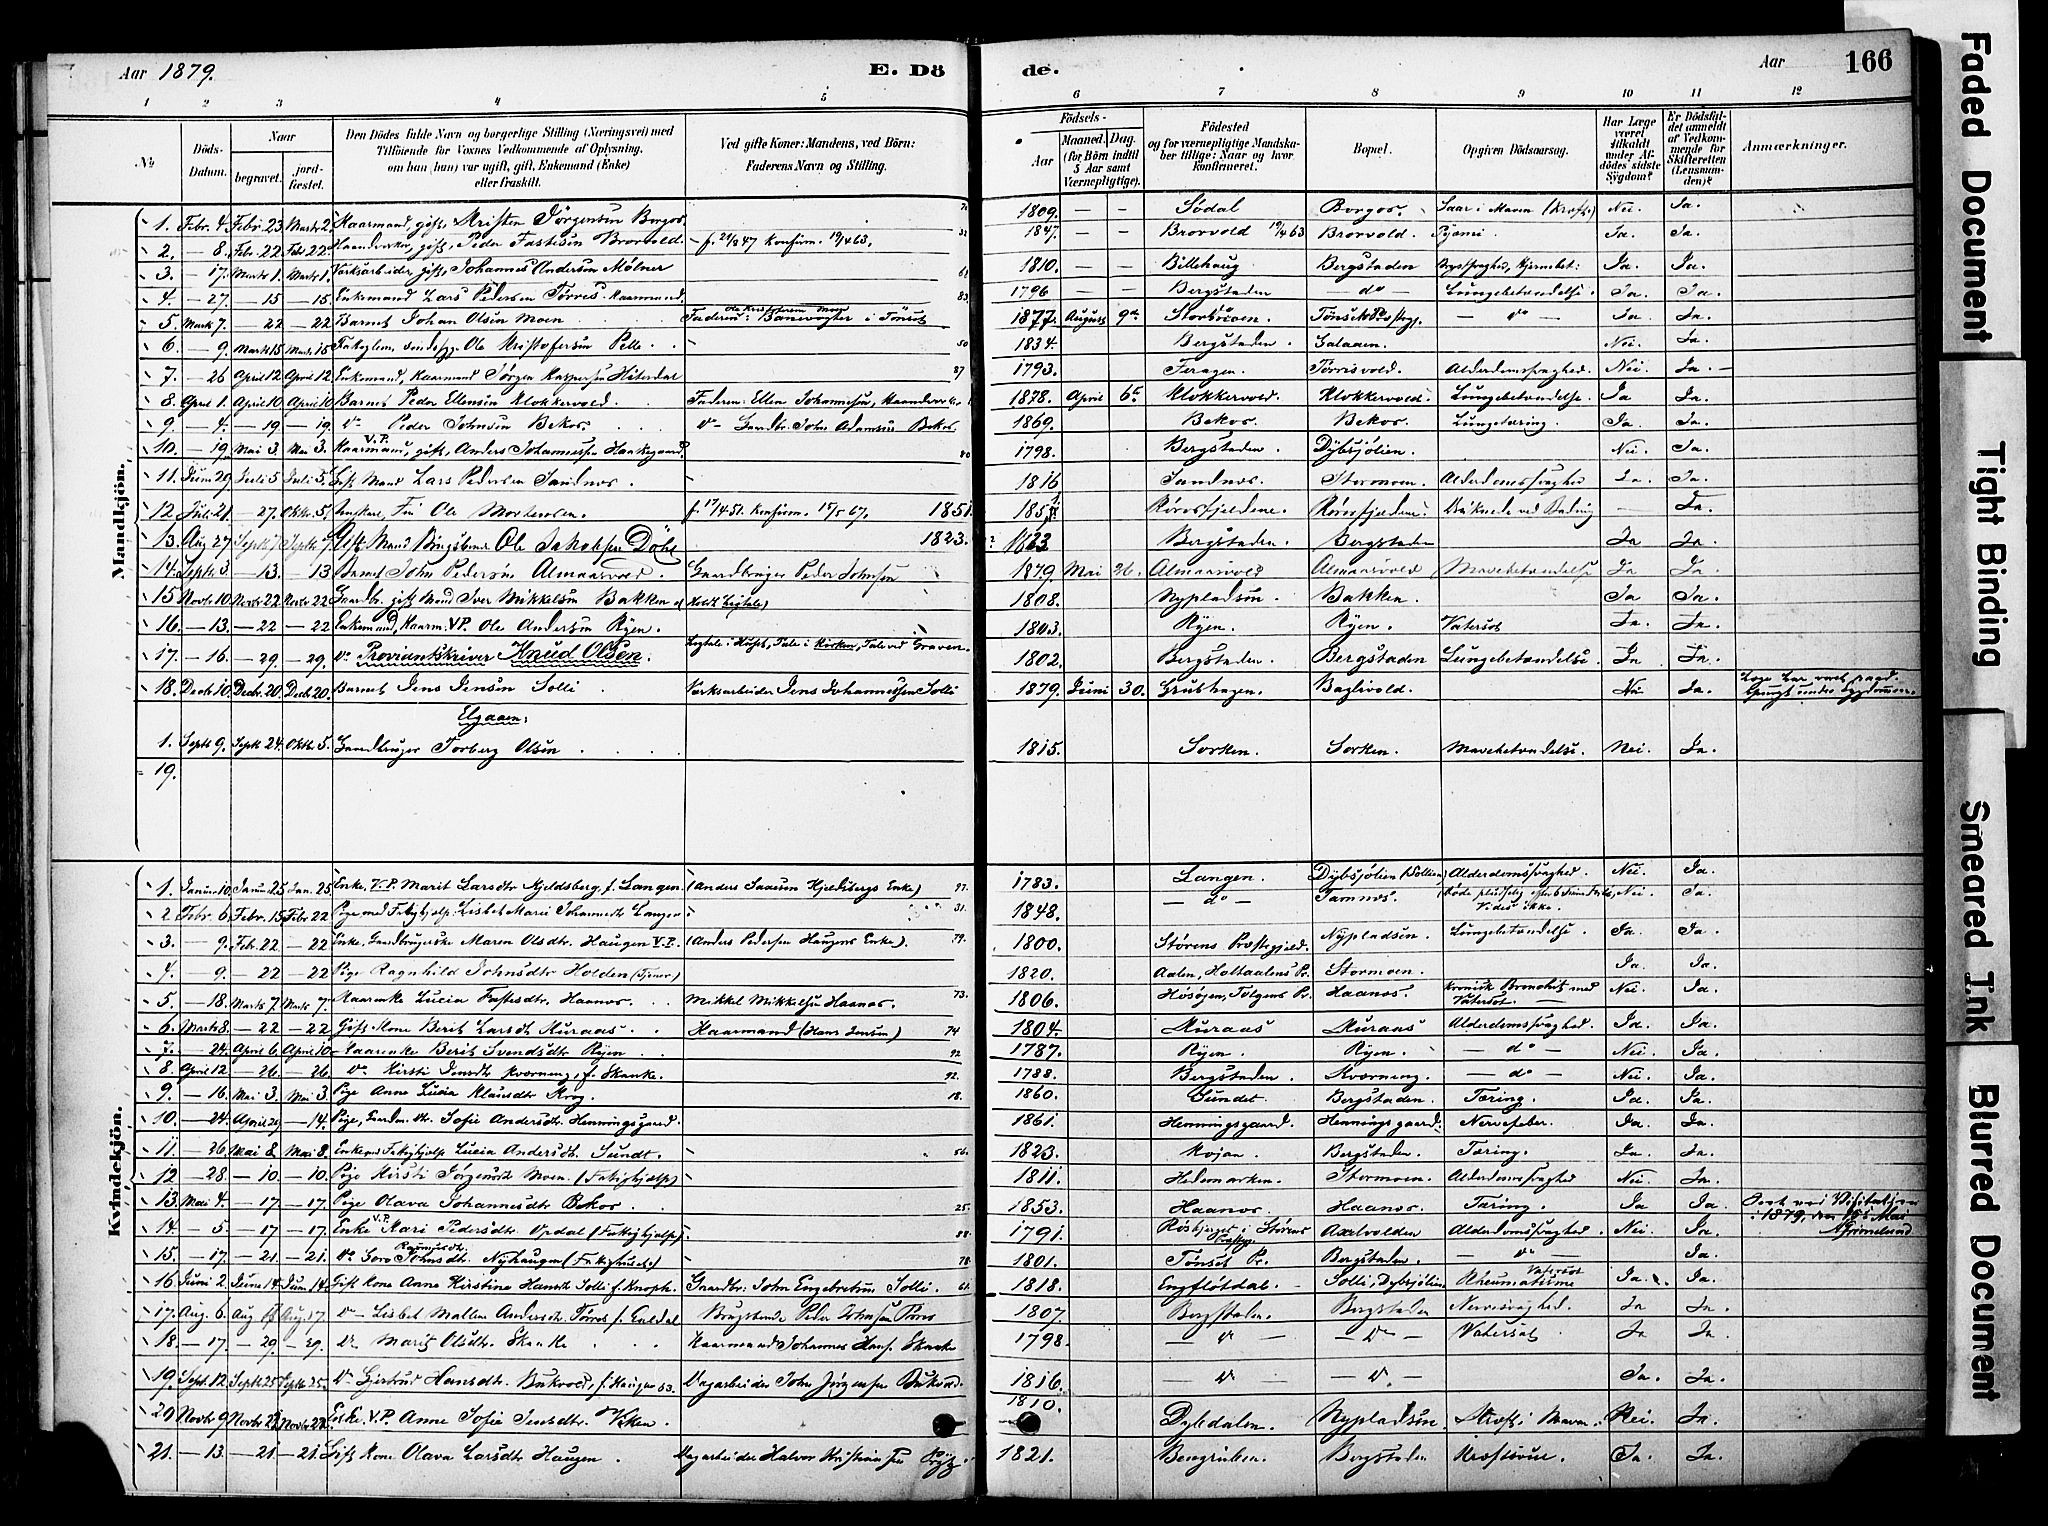 Aar 1879. E. Dö
de. Aar 166
1 2 3 4 5 6 7 8 9 10 11 12
№ Döds-Datum. Naar begravet. jordfæstet. Den Dödes fulde Navn og borgerlige Stilling (Næringsvei) med Tilföiende for Voxnes Vedkommende af Oplysning, om han (hun) var ugift, gift, Enkemand (Enke) eller fraskilt. Ved gifte Koner: Mandens, ved Börn: Faderens Navn og Stilling. Födsels- Aar Maaned. Dag. (for Börn indtil 5 Aar samt Værnepligtige). Födested og for værnepligtige Mandskaber tillige: Naar og hvor Konfirmeret. Bopæl. Opgiven Dödsaarsag. Har Læge været tilkaldt under Afdödes sidste Sygdom? Er Dödsfaldet anmeldt af Vedkommende for Skifteretten (Lensmanden)? Anmærkninger.
Mandkjön.
1. Febr. 4. Febr. 23 Marts 2. Kaarmand, gift, Kristen Jörgensen Borgos 1809. — — Sodal Borgos. Saar i Maven Nei Ja.
2. — 8. Febr. 22 Febr. 22. Haandverker, gift, Peder Brorvold. 1847. — — Brorvold Brorvold. Ja. Ja.
3. — 17. Marts 1. Marts 1. Verksarbeider, gift, Johannes Andersen Mölner 1810. — — Billehaug Bergstaden Ja. Ja.
4. — 27. — 15 — 15. Enkemand Lars Pedersen Torres. Kaarmand. 1796 — — Bergstaden — do — Lungebetændelse. Ja. Ja.
5. Marts 7. — 22 — 22 Barnet Johan Olsen Moen Faderen: Banevogter i Tönset 1877. August 9de — do — Ja. Ja.
6. — 9. Marts 15 Marts 15 Ole Kristofersen Pelle. 50 1834. Bergstaden. Galaaen. Nei. Ja.
7. — 26 April 12 April 12 Enkemand, Kaarmand Jörgen Kaspersen Hiterdal 87 1793. Feragen. Torrisvold. Alderdomssvaghed. Nei. Ja.
8. April 1. April 10 April 10 Barnet Peder Ellensen Klokkervold. Faderen: Ellen Johannesen, 1878. April 6te Klokkervold. Klokkervold. Lungebetændelse. Ja Ja.
9 — 4. — 19 — 19. do Peder Johnsen Bekos. do Gaardbr. John Adamsen Bekos. 1869. Bekos. Bekos. Lungetæring. Ja. Ja.
10. — 19. Mai 3. Mai 3. Kaarmand, V.P. gift, Anders Johannessen Haakegaard. 80 1798. Bergstaden. Dybsjölien. Nei. Ja.
11. Juni 29. Juli 5 Juli 5. Gift Mand Lars Pedersen Sandnes. 1816 Sandnes. Stormoen. Alderdomssvaghed Ja. Ja.
12. Juli 21. — 27. Oktbr. 5. Ole Mortensen. f. 17/4 51. Konfirm. 1851 Rörosfjeldene. Rörosfjeldene. Druknede ved Badning — Ja.
13. Aug. 27 Septb. 7. Septb. 7. Gift Mand Ole Jakobsen Döhl 1823. 1823 Bergstaden. Bergstaden Ja Ja.
14. Septb. 3 — 13. — 13 Barnet John Pedersen Almaasvold. Gaardbruger Peder Johnsen 1879. Mai 26. Almaasvold Almaasvold Mavebetændelse Ja Ja.
15 Novbr. 10 Novbr. 22 Novbr. 22 Gaardbr. gift Mand Iver Mikkelsen Bakken 1808. Nypladsen. Bakken. Ja Ja.
16. — 13. — 22 — 22 Enkemand, Kaarm. V.P. Ole Andersen Ryen. 1803. Ryen. Ryen. Vatersot Ja. Ja.
17. — 16. — 29. — 29. do Proviantskriver Knud Olsen. Ligtale i Huset, Tale i Kirken, Tale ved Graven. 1802. Bergstaden. Bergstaden Lungebetændelse. Ja. Ja.
18. Decbr. 10. Decbr. 20 Decbr. 20. Barnet Jens Jensen Solli. Verksarbeider Jens Johannessen Solli 1879. Juni 30. Bagtvold. Nei Ja. Læge har været raadspurgt under Sygdommen.
Elgaaen:
1. Septb. 9. Septb. 24. Oktbr. 5. Gaardbruger Torberg Olsen 1815. Sorken. Sorken. Mavebetændelse. Nei. Ja.
19.
Kvindekjön.
1. Januar 10. Januar 25 Jan. 25. Enke, V.P. Marit Larsdtr. Kjeldsberg, f. Langen (Anders Kjeldsbergs Enke) 97. 1783. Langen. Dybsjölien (Sollien) Alderdomssvaghed. Nei. Ja.
2 Febr. 6. Febr. 15. Febr. 22 Pige med Fattighjælp Lisbet Marie Johannesdtr. Langen 31. 1848. — do — Tamnes. Nei. Ja.
3. — 9. Feb. 22 — 22 Enke, Gaardbrugerske Maren Olsdtr. Haugen V.P. (Anders Pedersen Haugens Enke). 79. 1800. Störens Præstegjeld. Nypladsen. Lungebetændelse. Ja. Ja.
4. — 9. — 22 — 22 Pige Ragnhild Johnsdtr. Holden (Tjener) 1820. Aalen, Holtaalens Pr. Stormoen. Ja. Ja.
5. — 18. Marts 7. Marts 7. Kaarenke Lucia Fastesdtr. Haanes. Mikkel Mikkelsen Haanes. 73. 1806. Hösöjen, Tolgens Pr. Haanes. Kronisk Bronchit med Vatersot. Nei. Ja.
6. Marts 8. — 22 — 22 Gift Kone Berit Larsdtr. Kuraas. Kaarmand (Hans Jensen) 74 1804. Kuraas Kuraas Alderdomssvaghed. Ja. Ja.
7. — 24. April 6 April 10 Kaarenke Berit Svendsdtr. Ryen 92 1787. Ryen. Ryen. — do — Nei. Ja.
8 April 12. — 26 — 26. do Kirsti Jensdtr. Kværneng, f. Skanke. 92. 1788. Bergstaden. Kværneng. — do — Nei. Ja.
9. — 16. Mai 3. Mai 3. Pige Anne Lucia Klausdtr. Krog. 18. 1860. Sundet. Bergstaden. Tæring. Ja. Ja.
10. — 24. April 29 — 14. Pige, Sofie Andersdtr. Henningsgaard. 1861. Henningsgaard. Henningsgaard. Nervefeber. Ja. Ja.
11. — 26. Mai 8 Mai 8. Enke med Fattighjælp Lucia Andersdtr. Sundt. 56. 1823. Kojan. Bergstaden. Tæring. Ja. Ja.
12 — 28. — 10. — 10. Pige Kirsti Jörgensdtr. Moen. (Fattighjælp) 1811. Hedemarken. Stormoen. Alderdomssvaghed Nei. Ja.
13. Mai 4. — 17 — 17. Pige Olava Johannesdtr. Bekos. 25. 1853. Haanes. Haanes. Tæring. Ja Ja. Seet ved Visitation i 1879, den 15de Mai
14. — 5. — 17 — 17. Enke V.P. Mari Pedersdtr. Opdal (Fattighjælp). 88. 1791. Axelvolden Alderdomssvaghed. Nei. Ja. Grimelund
15. — 17. — 21 — 21. do Johnsdtr. Nyhaugen (Fattighuset) 78. 1801. Tönset Pr. Bergstaden. — do — Ja.
16 Juni 2. Juni 14. Juni 14. Gift Kone Anne Kirstine Hansdtr. Solli f. Knoph. Gaardbr. John Engebretsen Solli. 61. 1818. Solli, Dybsjölien Rheumatisme Vatersot Ja. Ja.
17. Aug. 6. Aug 17 Aug. 17. do Lisbet Malene Andersdtr. Torres f. Guldal Peder Johnsen Torres 1807. Bergstaden. Bergstaden Nervesvaghed. Ja Ja.
18. — 17. — 29. — 29. do Marit Olsdtr. Skanke Kaarmand Johannes Hans. Skanke 1798. — do — — do — Vatersot Ja Ja.
19. Sept. 12. Septb. 25 Septb. 25. do Gjertrud Hansdtr. Bukvold, f. Haugen 63. Bergarbeider John Jörgensen Bukvold. 1816. — do — — do — Ja. Ja.
20 Novbr. 9 Novbr. 22 Novbr. 22. Enke. V.P. Anne Sofie Jensdtr. Viken. 1810. Dybdalen. Nypladsen Kræft i Maven. Nei. Ja.
21. — 13. — 21. — 21. Gift Kone Olava Larsdtr. Haugen. Bergarbeider Halvor 1821. Bergstaden Ja. Ja.
Faded Document
Tight Binding
Smeared Ink
Blurred Document